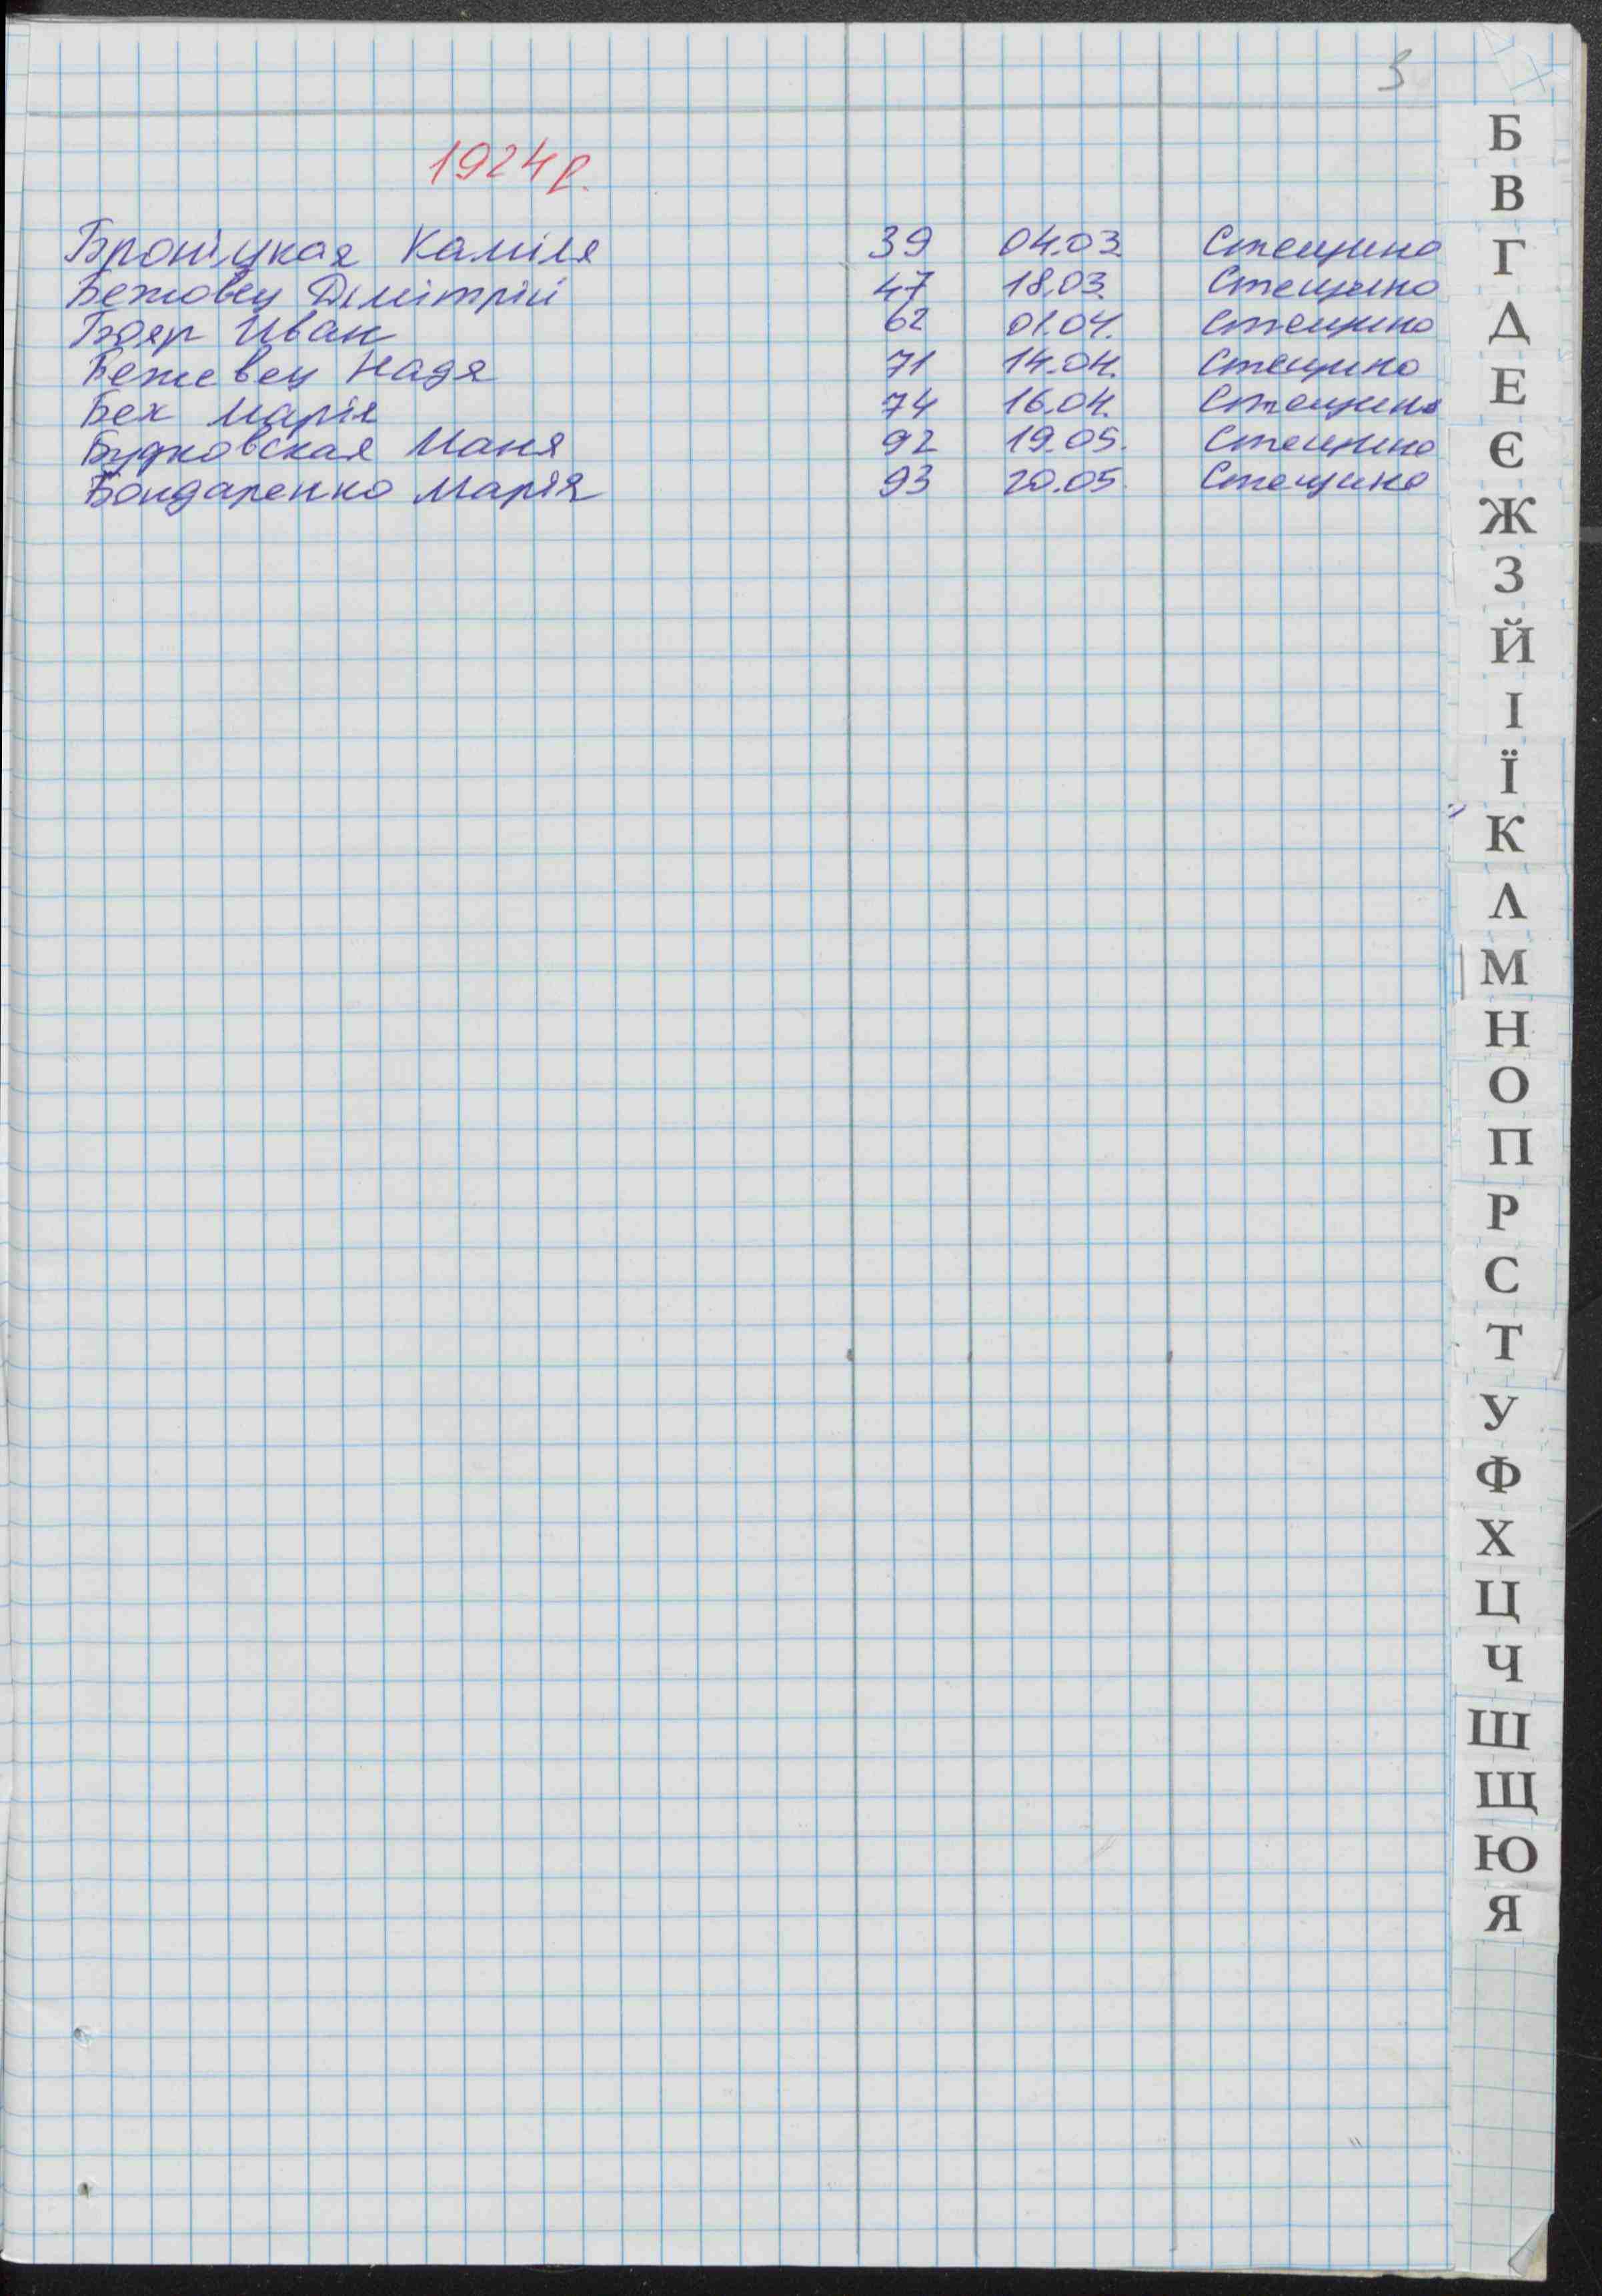 3
1924р.
Броніцкая Каміля 39 04.03. Стещино
Бежовец Дімітрій 47 18.03. Стещино
Бояр Иван 62 01.04. Стещино
Бежевец Надя 71 14.04. Стещино
Бех Марія 74 16.04. Стещино
Будковская Маня 92 19.05. Стещино
Бондаренко Марія 93 20.05. Стещино
Б
В
Г
Д
Е
Є
Ж
З
Й
І
Ї
К
Л
М
Н
О
П
Р
С
Т
У
Ф
Х
Ц
Ч
Ш
Щ
Ю
Я